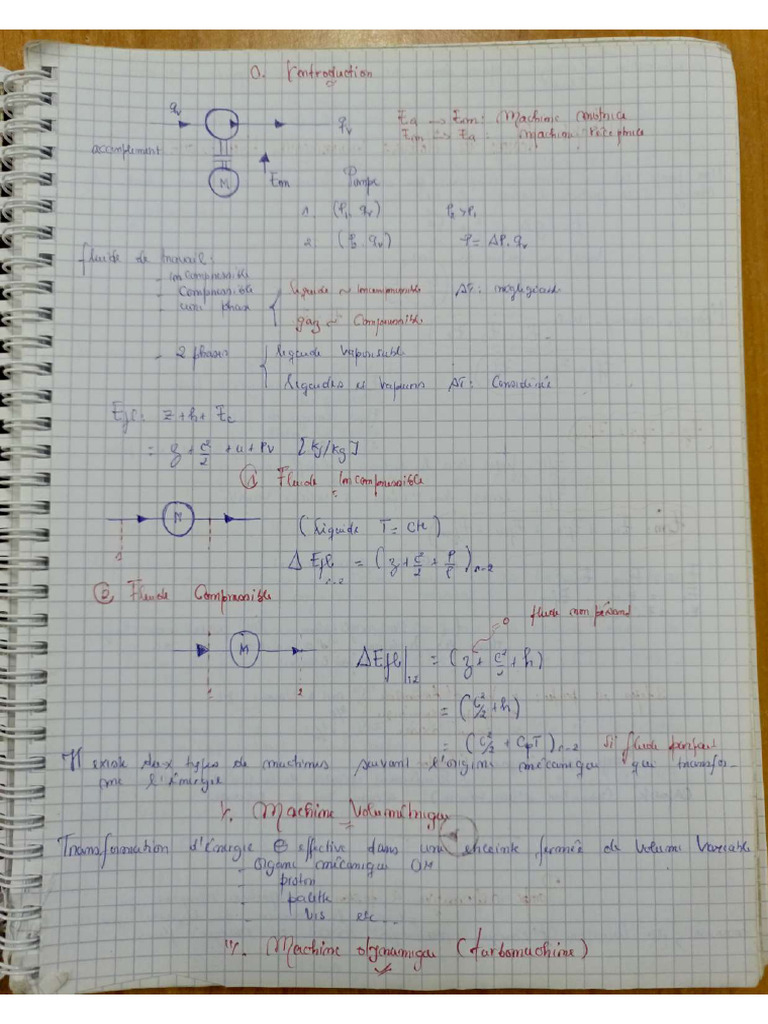 0. Introduction
qv qv Ea → Em : Machine motrice
Em → Ea : machine réceptrice
accomplement
M Em Pompe
1. (P1, qv) P2 > P1
2. (P2, qv) P = ΔP. qv
fluide de travail :
- incompressible
- Compressible liquide ~ Incompressible ΔT : négligeable
- uni phase
gaz ~ Compressible
- 2 phases liquide vaporisable
liquides et vapeurs ΔT : Considérée
Efl : z + h + Ec
= z + c²/2 + u + Pv [kj/kg]
① Fluide Incompressible
M
(liquide T = cte)
1
Δ Efl 1-2 = (z + c²/2 + P/ρ)1-2
② Fluide Compressible
0 fluide non pésant
M ΔEfl|12 = (z + c²/2 + h)
1 2
= (c²/2 + h)
= (c²/2 + CpT)1-2 si fluide parfait
Il existe deux types de machines suivant l'origine mécanique que transfor-
me l'énergie
1/. Machine Volumétrique
Transformation d'énergie effective dans une enceinte fermée de volume variable
- Organe mécanique OM
- piston
- palette
- vis etc...
Machine dynamique (turbomachine)